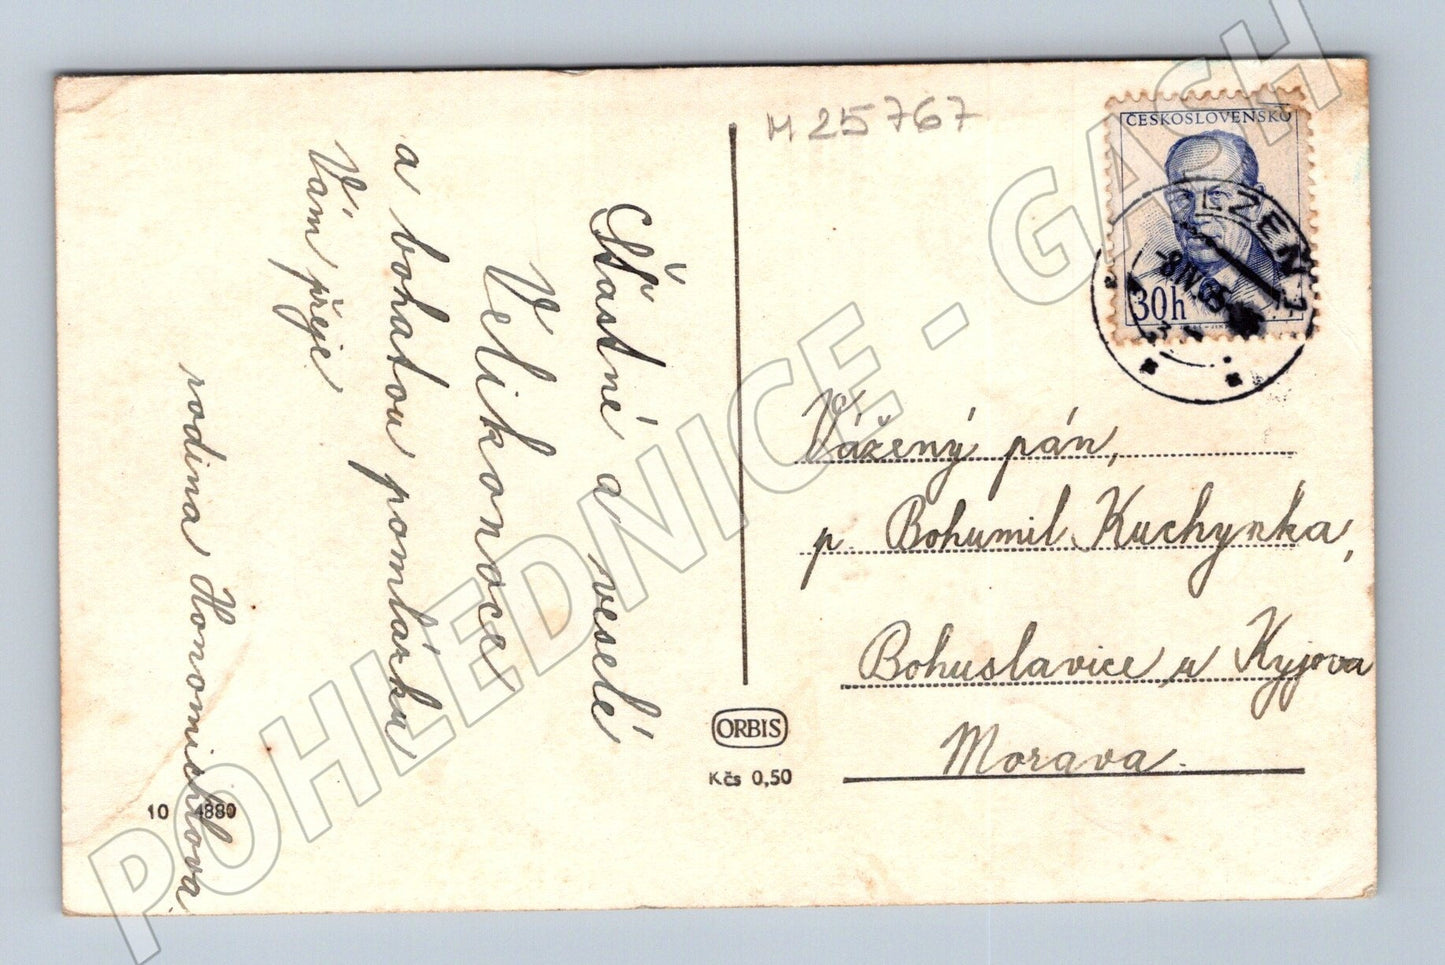 M 25767
ČESKOSLOVENSKO
PLZEŇ 1
-8.IV.65
30h
Šťastné a veselé
Velikonoce
a bohatou pomlázku
Vám přeje
rodina Honomichlova
Vážený pán,
p. Bohumil Kuchynka,
Bohuslavice u Kyjova
Morava.
ORBIS
Kčs 0,50
10 4880
POHLEDNICE - GASH